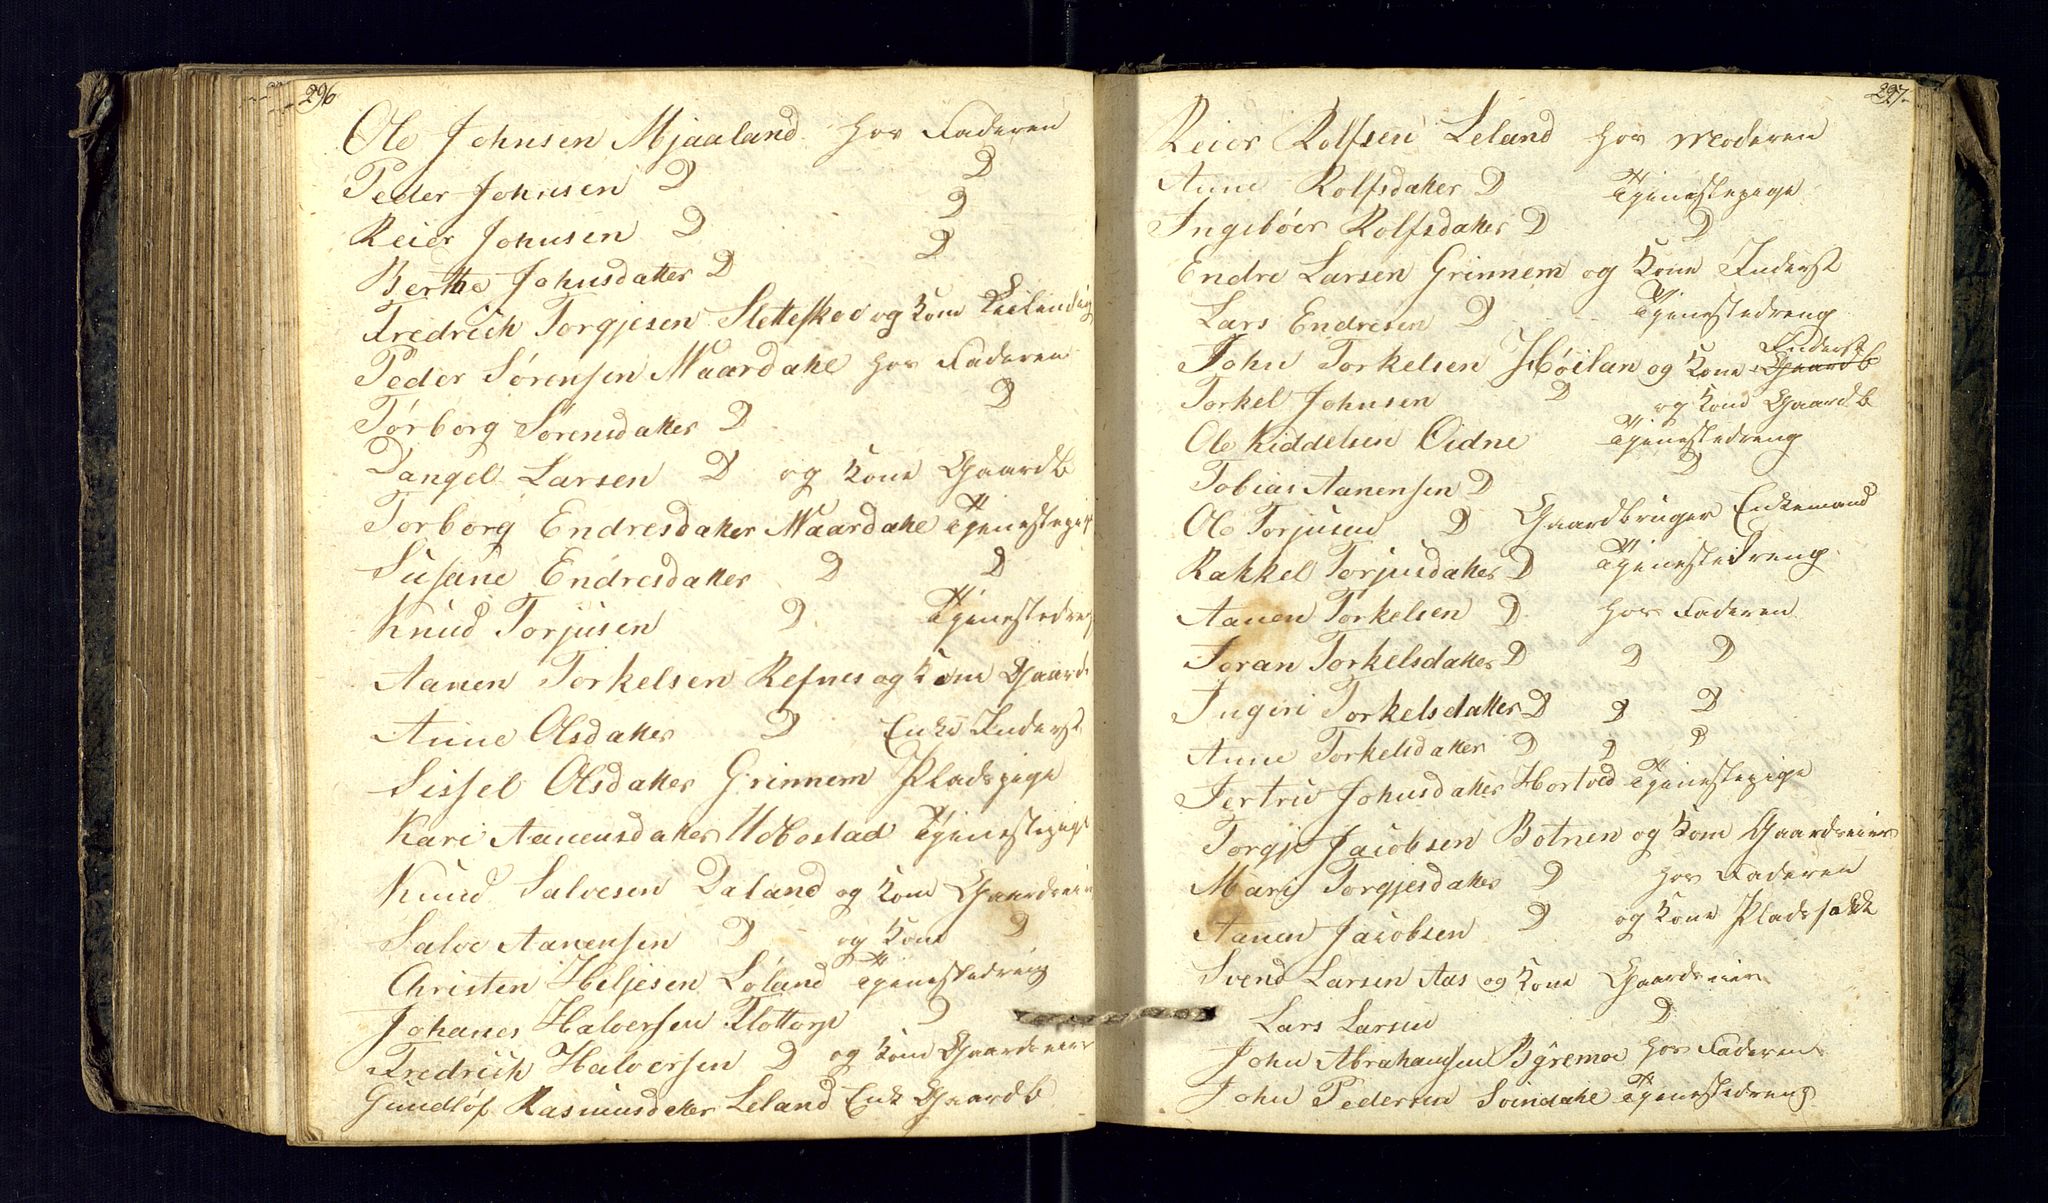 296
Ole Johnsen Mjaaland hos Faderen
Peder Johnsen D D
Reier Johnsen D D
Berthe Johnsdatter D D
Fredrich Torgjesen Stetteskov og Kone
Peder Sørensen Maardahl hos Faderen
Torborg Sørensdatter D D
Dangel Larsen D og Kone Gaardb
Torborg Endresdatter Maardahl Tjenestepig
Susane Endresdatter D D
Knud Torjusen D Tjenestedren
Aanen Torkelsen Refnes og Kone Gaard
Anne Olsdatter D Enke Inderst
Sissel Olsdatter Grinnem Pladspige
Kari Aanensdatter Udbostad Tjenestepige
Knud Salvesen Daland og Kone Gaardseier
Salve Aanensen D og Kone D
Christen Heljesen Løland Tjenestedreng
Johanes Halversen Flottorp D
Fredrich Halversen D og Kone Gaardseier
Gundlof Rasmusdatter Leland Enk Gaardb
297.
Reier Rolfsen Leland hos Moderen
Anne Rolfsdatter D Tjenestepige
Ingebôer Rolfsdatter D D
Endre Larsen Grinnem og Kone Inderst
Lars Endresen D Tjenestedreng
Inderst
John Torkelsen Høilan og Kone Gaardb
Torkel Johnsen D og Kone Gaardb
Ole Kiddelsen Eidne Tjenestedreng
Tobias Aanensen D D
Ole Torjusen D Gaardbruger Enkemand
Rakkel Torjusdatter D Tjenestedreng
Aanen Torkelsen D hos Faderen
Joran Torkelsdatter D D D
Ingeri Torkelsdatter D D D
Anne Torkelsdatter D D D
Jertru Johnsdatter Hortved Tjenestepige
Torgje Jacobsen Botnen og Kone Gaardseier
Mari Torgjesdatter D hos Faderen
Aanen Jacobsen D og Kone Pladsfolk
Svend Larsen Aas og Kone Gaardseier
Lars Larsen D
John Abrahamsen Byremoe hos Faderen
John Pedersen Svindahl Tjenestedreng